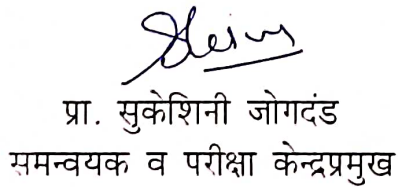 प्रा. सुकेशिनी जोगदंड
समन्वयक व परीक्षा केन्द्रप्रमुख